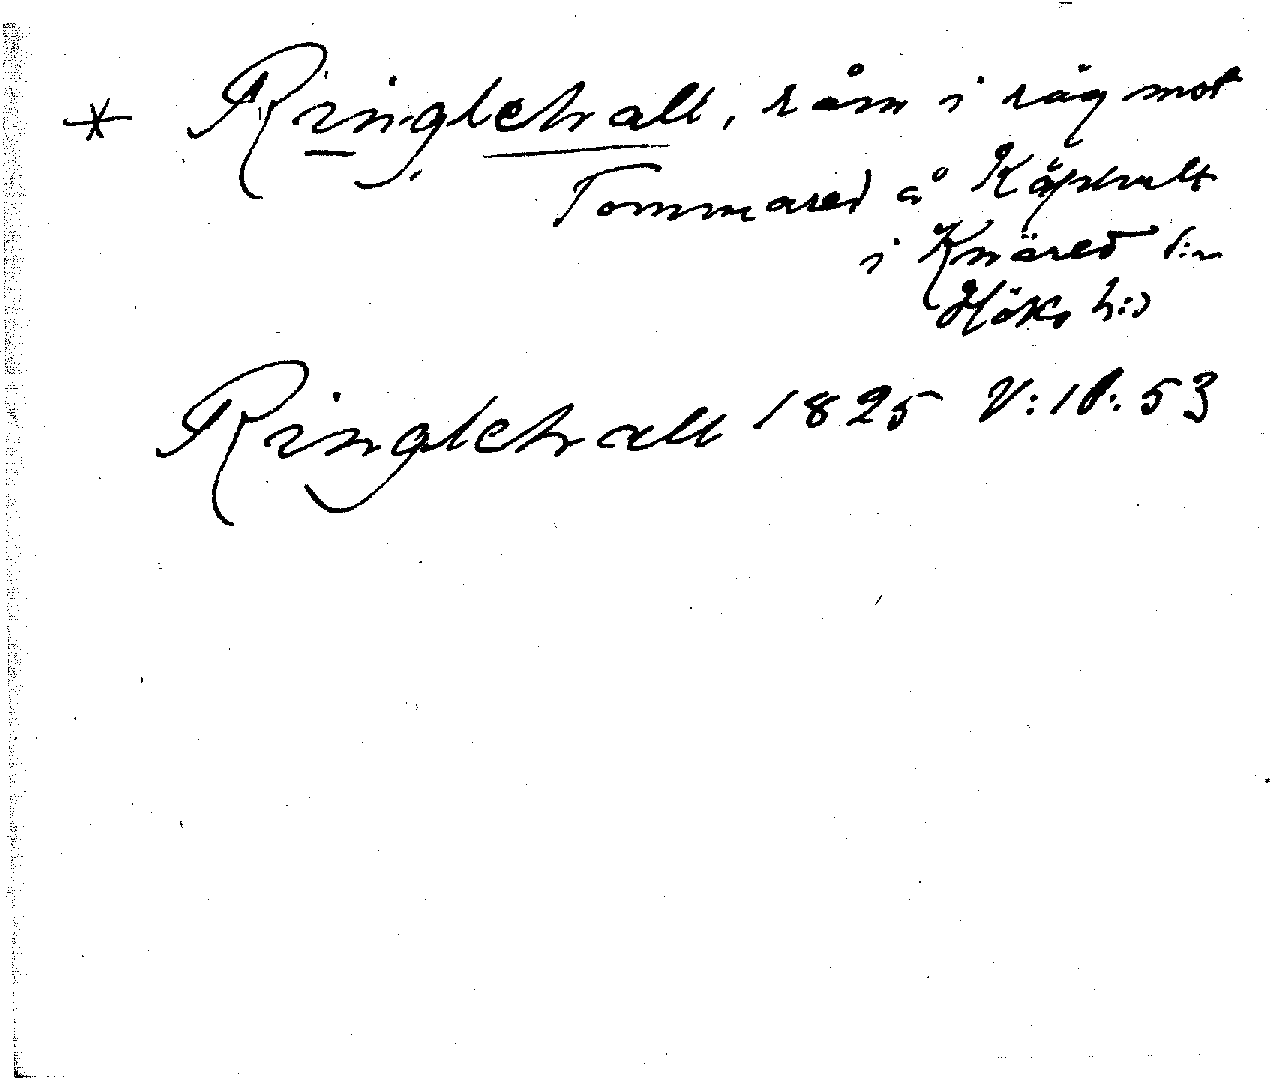 * Ringlehall, råm i råg mot
Tommared å Käphult
i Knäred s:n
Höks h:d
Ringlehall 1825 V: 18: 53